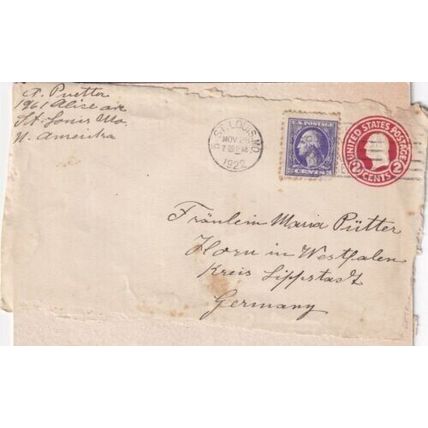 P. Puetter
1961 Alice av
St. Louis Mo.
N. Amerika
ST. LOUIS, MO.
NOV
1922
U.S. POSTAGE
CENTS
UNITED STATES POSTAGE
2 CENTS 2
Fräulein Maria Pütter
Horn in Westfalen
Kreis Lippstadt
Germany